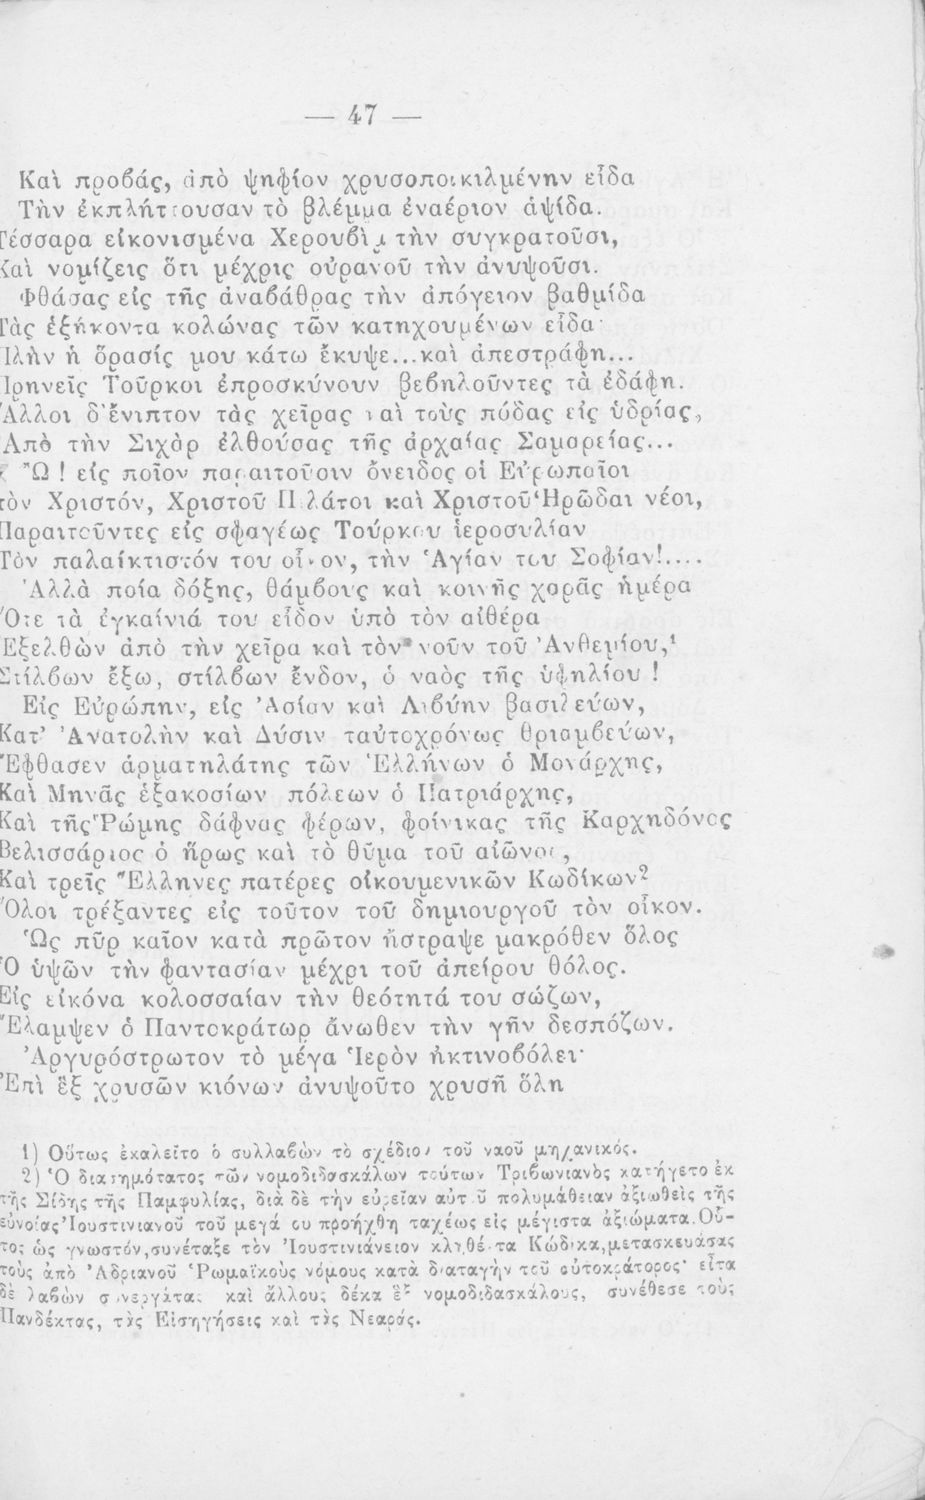 — 47 —
Καὶ προβάς, ἀπὸ ψηφίον χρυσοποικιλμένην εἶδα
Τὴν ἐκπλήττουσαν τὸ βλέμμα ἐναέριον ἁψίδα.
Τέσσαρα εἰκονισμένα Χερουβὶμ τὴν συγκρατοῦσι,
Καὶ νομίζεις ὅτι μέχρις οὐρανοῦ τὴν ἀνυψοῦσι.
Φθάσας εἰς τῆς ἀναβάθρας τὴν ἀπόγειον βαθμίδα
Τὰς ἑξήκοντα κολώνας τῶν κατηχουμένων εἶδα·
Πλὴν ἡ ὅρασίς μου κάτω ἔκυψε...καὶ ἀπεστράφη...
Πρηνεῖς Τοῦρκοι ἐπροσκύνουν βεβηλοῦντες τὰ ἐδάφη.
Ἄλλοι δ'ἔνιπτον τὰς χεῖρας καὶ τοὺς πόδας εἰς ὑδρίας,
Ἀπὸ τὴν Σιχὰρ ἐλθούσας τῆς ἀρχαίας Σαμαρείας...
« Ὢ ! εἰς ποῖον παραιτοῦσιν ὄνειδος οἱ Εὐρωπαῖοι
τὸν Χριστόν, Χριστοῦ Πιλάτοι καὶ Χριστοῦ Ἡρῶδαι νέοι,
Παραιτοῦντες εἰς σφαγέως Τούρκου ἱεροσυλίαν
Τὸν παλαίκτιστόν του οἶκον, τὴν Ἁγίαν του Σοφίαν!....
Ἀλλὰ ποία δόξης, θάμβους καὶ κοινῆς χαρᾶς ἡμέρα
Ὅτε τὰ ἐγκαίνιά του εἶδον ὑπὸ τὸν αἰθέρα
Ἐξελθὼν ἀπὸ τὴν χεῖρα καὶ τὸν νοῦν τοῦ Ἀνθεμίου,¹
Στίλβων ἔξω, στίλβων ἔνδον, ὁ ναὸς τῆς ὑφηλίου !
Εἰς Εὐρώπην, εἰς Ἀσίαν καὶ Λιβύην βασιλεύων,
Κατ' Ἀνατολὴν καὶ Δύσιν ταὐτοχρόνως θριαμβεύων,
Ἔφθασεν ἁρματηλάτης τῶν Ἑλλήνων ὁ Μονάρχης,
Καὶ Μηνᾶς ἑξακοσίων πόλεων ὁ Πατριάρχης,
Καὶ τῆς Ῥώμης δάφνας φέρων, φοίνικας τῆς Καρχηδόνος
Βελισσάριος ὁ ἥρως καὶ τὸ θῦμα τοῦ αἰῶνος,
Καὶ τρεῖς Ἕλληνες πατέρες οἰκουμενικῶν Κωδίκων²
Ὅλοι τρέξαντες εἰς τοῦτον τοῦ δημιουργοῦ τὸν οἶκον.
Ὡς πῦρ καῖον κατὰ πρῶτον ἤστραψε μακρόθεν ὅλος
Ὁ ὑψῶν τὴν φαντασίαν μέχρι τοῦ ἀπείρου θόλος.
Εἰς εἰκόνα κολοσσαίαν τὴν θεότητά του σώζων,
Ἔλαμψεν ὁ Παντοκράτωρ ἄνωθεν τὴν γῆν δεσπόζων.
Ἀργυρόστρωτον τὸ μέγα Ἱερὸν ἠκτινοβόλει·
Ἐπὶ ἓξ χρυσῶν κιόνων ἀνυψοῦτο χρυσῆ ὅλη
1) Οὕτως ἐκαλεῖτο ὁ συλλαβὼν τὸ σχέδιον τοῦ ναοῦ μηχανικός.
2) Ὁ διασημότατος τῶν νομοδιδασκάλων τούτων Τριβωνιανὸς κατήγετο ἐκ
τῆς Σίδης τῆς Παμφυλίας, διὰ δὲ τὴν εὐρεῖαν αὐτοῦ πολυμάθειαν ἀξιωθεὶς τῆς
εὐνοίας Ἰουστινιανοῦ τοῦ μεγάλου προήχθη ταχέως εἰς μέγιστα ἀξιώματα. Οὗ-
τος ὡς γνωστόν, συνέταξε τὸν Ἰουστινιάνειον κληθέντα Κώδικα, μετασκευάσας
τοὺς ἀπὸ Ἀδριανοῦ Ῥωμαϊκοὺς νόμους κατὰ διαταγὴν τοῦ αὐτοκράτορος· εἶτα
δὲ λαβὼν συνεργάτας καὶ ἄλλους δέκα ἓξ νομοδιδασκάλους, συνέθεσε τοὺς
Πανδέκτας, τὰς Εἰσηγήσεις καὶ τὰς Νεαράς.